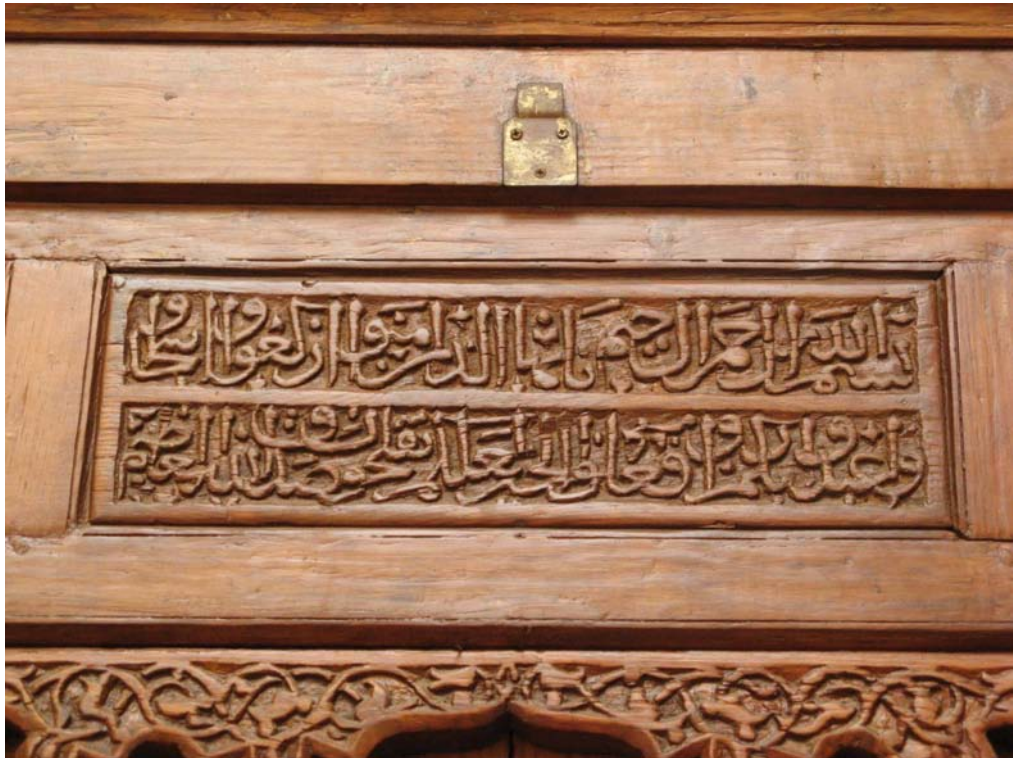 بسم الله الرحمن الرحيم يا ايها الذين امنوا اركعوا واسجدوا
واعبدوا ربكم وافعلوا الخير لعلكم تفلحون صدق الله العظيم